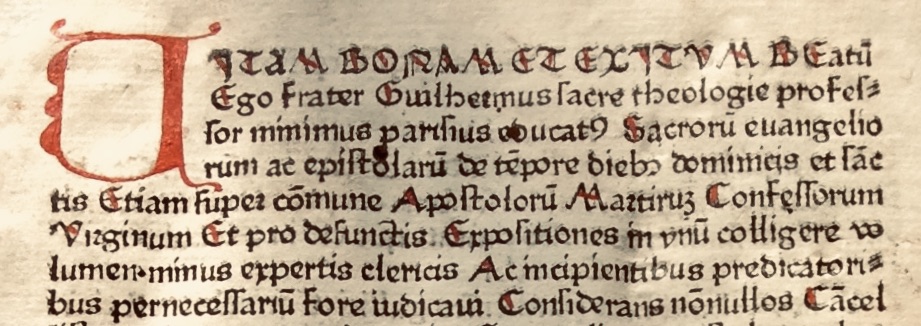 VITAM BONAM ET EXITVM BEatū
Ego frater Guilhermus sacre theologie profeſ⸗
ſor minimus pariſius educatꝰ Sacrorū euangelio
rum ac epiſtolarū de tēpore diebꝫ dominicis et ſāc
tis Etiam ſuper cōmune Apoſtolorū Martiruꝫ Confeſſorum
Virginum Et pro defunctis. Expoſitiones in vnū colligere vo
lumen minus expertis clericis Ac incipientibus predicatori⸗
bus perneceſſariū fore iudicaui. Conſiderans nōnullos Cācel